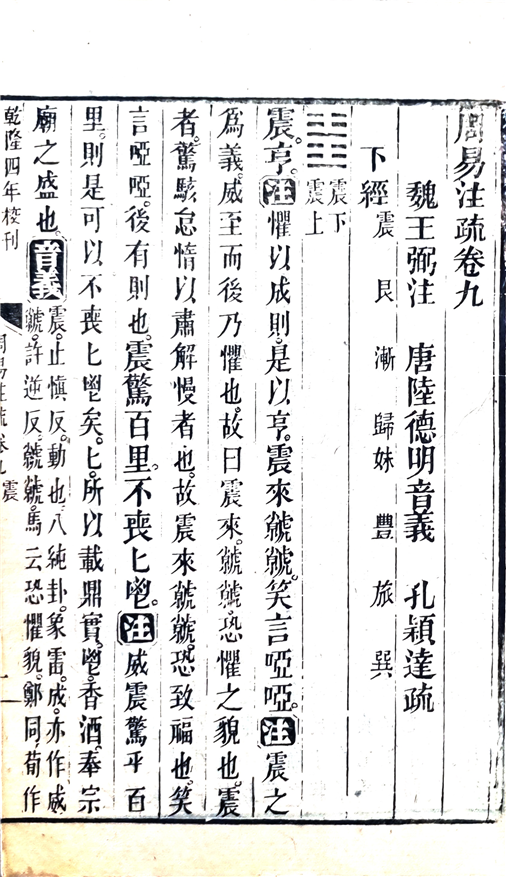 周易注疏卷九
魏王弼注 唐陸德明音義 孔穎達疏
下經 震 艮 漸 歸妹 豐 旅 巽
震下
震上
震。亨。注懼以成則。是以亨。震來虩虩。笑言啞啞。注震之
爲義。威至而後乃懼也。故曰震來。虩虩。恐懼之貌也。震
者。驚駭怠惰以肅解慢者也。故震來虩虩。恐致福也。笑
言啞啞。後有則也。震驚百里。不喪匕鬯。注威震驚乎百
里。則是可以不喪匕鬯矣。匕。所以載鼎實。鬯。香酒。奉宗
廟之盛也。音義震。止愼反。動也。八純卦。象雷。成。亦作威
虩。許逆反。虩虩。馬云恐懼貌。鄭同。荀作
乾隆四年校刊
周易注疏卷九 震
一